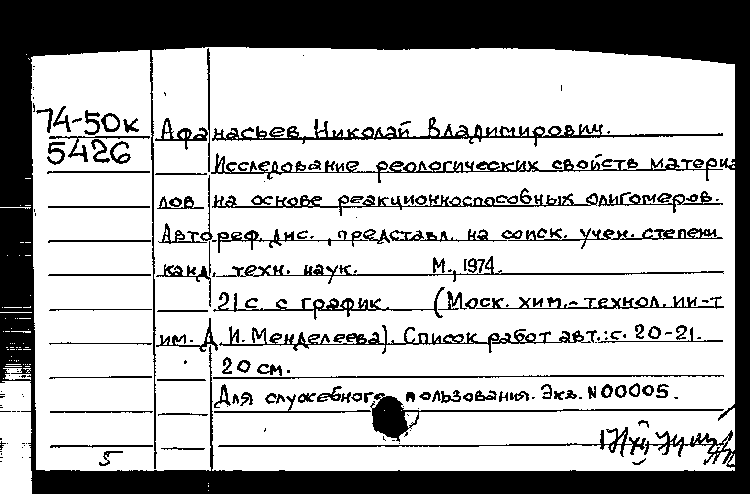 74-50к
5426
Афанасьев, Николай Владимирович.
Исследование реологических свойств материа
лов на основе реакционноспособных олигомеров.
Автореф. дис., представл. на соиск. учен. степени
канд. техн. наук. М., 1974.
21 с. с график. (Моск. хим.-технол. ин-т
им. Д. И. Менделеева). Список работ авт.: с. 20-21.
20 см.
Для служебного пользования. Экз. N00005.
5